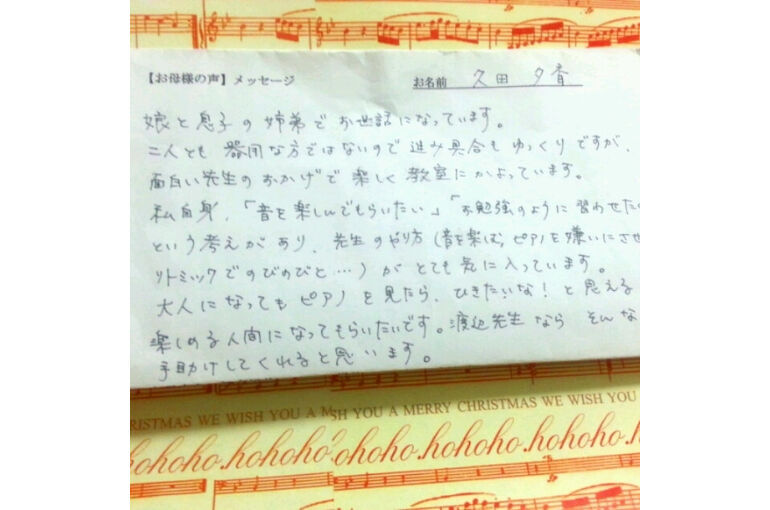 【お母様の声】メッセージ
お名前 久田 夕香
娘と息子の姉弟でお世話になっています。
二人とも器用な方ではないので進み具合もゆっくりですが、
面白い先生のおかげで楽しく教室にかよっています。
私自身、「音を楽しんでもらいたい」「お勉強のように習わせたく
という考えがあり、先生のやり方(音を楽しむ、ピアノを嫌いにさせ
リトミックでのびのびと…)がとても気に入っています。
大人になってもピアノを見たら、ひきたいな!と思える
楽しめる人間になってもらいたいです。渡辺先生なら そんな
手助けしてくれると思います。
RISTMAS WE WISH YOU A M
SH YOU A MERRY CHRISTMAS WE WISH YOU
hohoho.hohoho.hohoho.hohoho